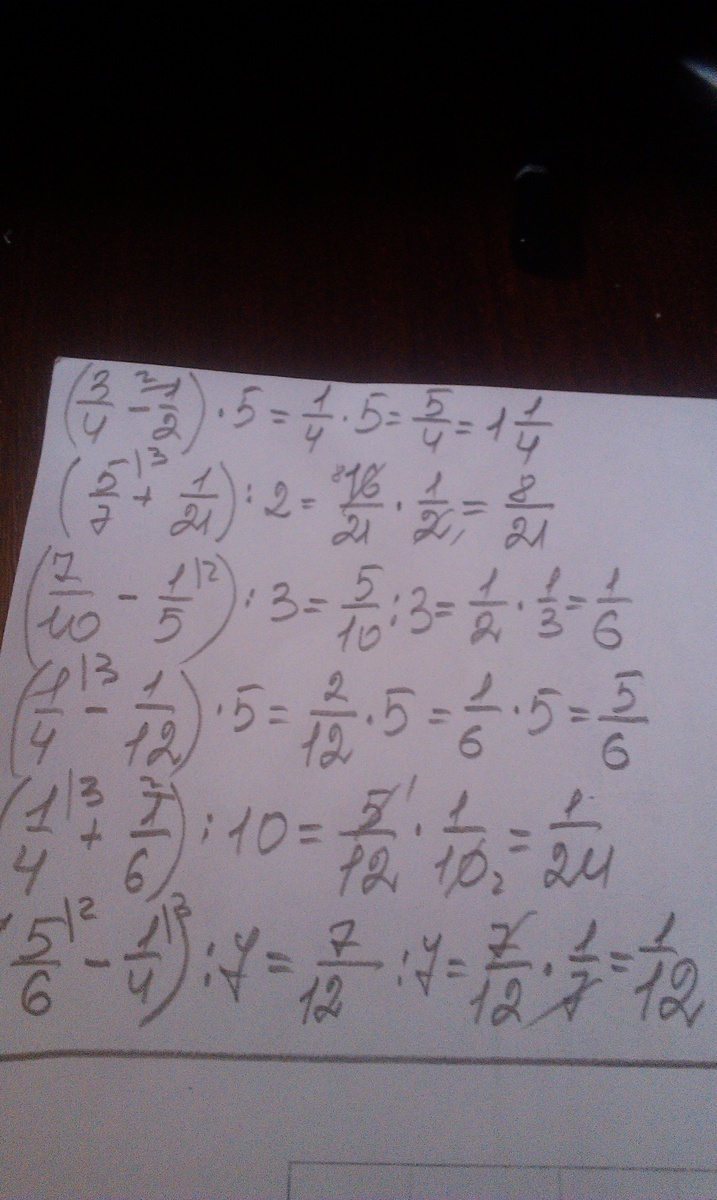 (3/4 - 1/2|2) · 5 = 1/4 · 5 = 5/4 = 1 1/4
(5/7|3 + 1/21) : 2 = 16/21 · 1/2 = 8/21
(7/10 - 1/5|2) : 3 = 5/10 : 3 = 1/2 · 1/3 = 1/6
(1/4|3 - 1/12) · 5 = 2/12 · 5 = 1/6 · 5 = 5/6
(1/4|3 + 1/6|2) : 10 = 5/12 · 1/10 = 1/24
5/6|2 - 1/4|3) : 7 = 7/12 : 7 = 7/12 · 1/7 = 1/12